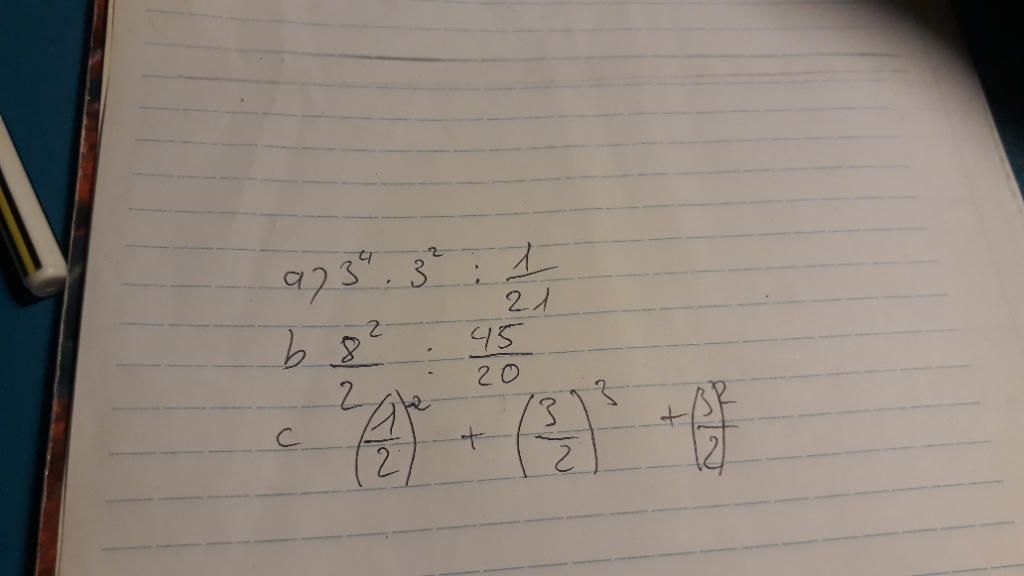 a) 3⁴ · 3² : 1/21
b 8²/2 : 45/20
c (1/2)² + (3/2)³ + (3/2)²